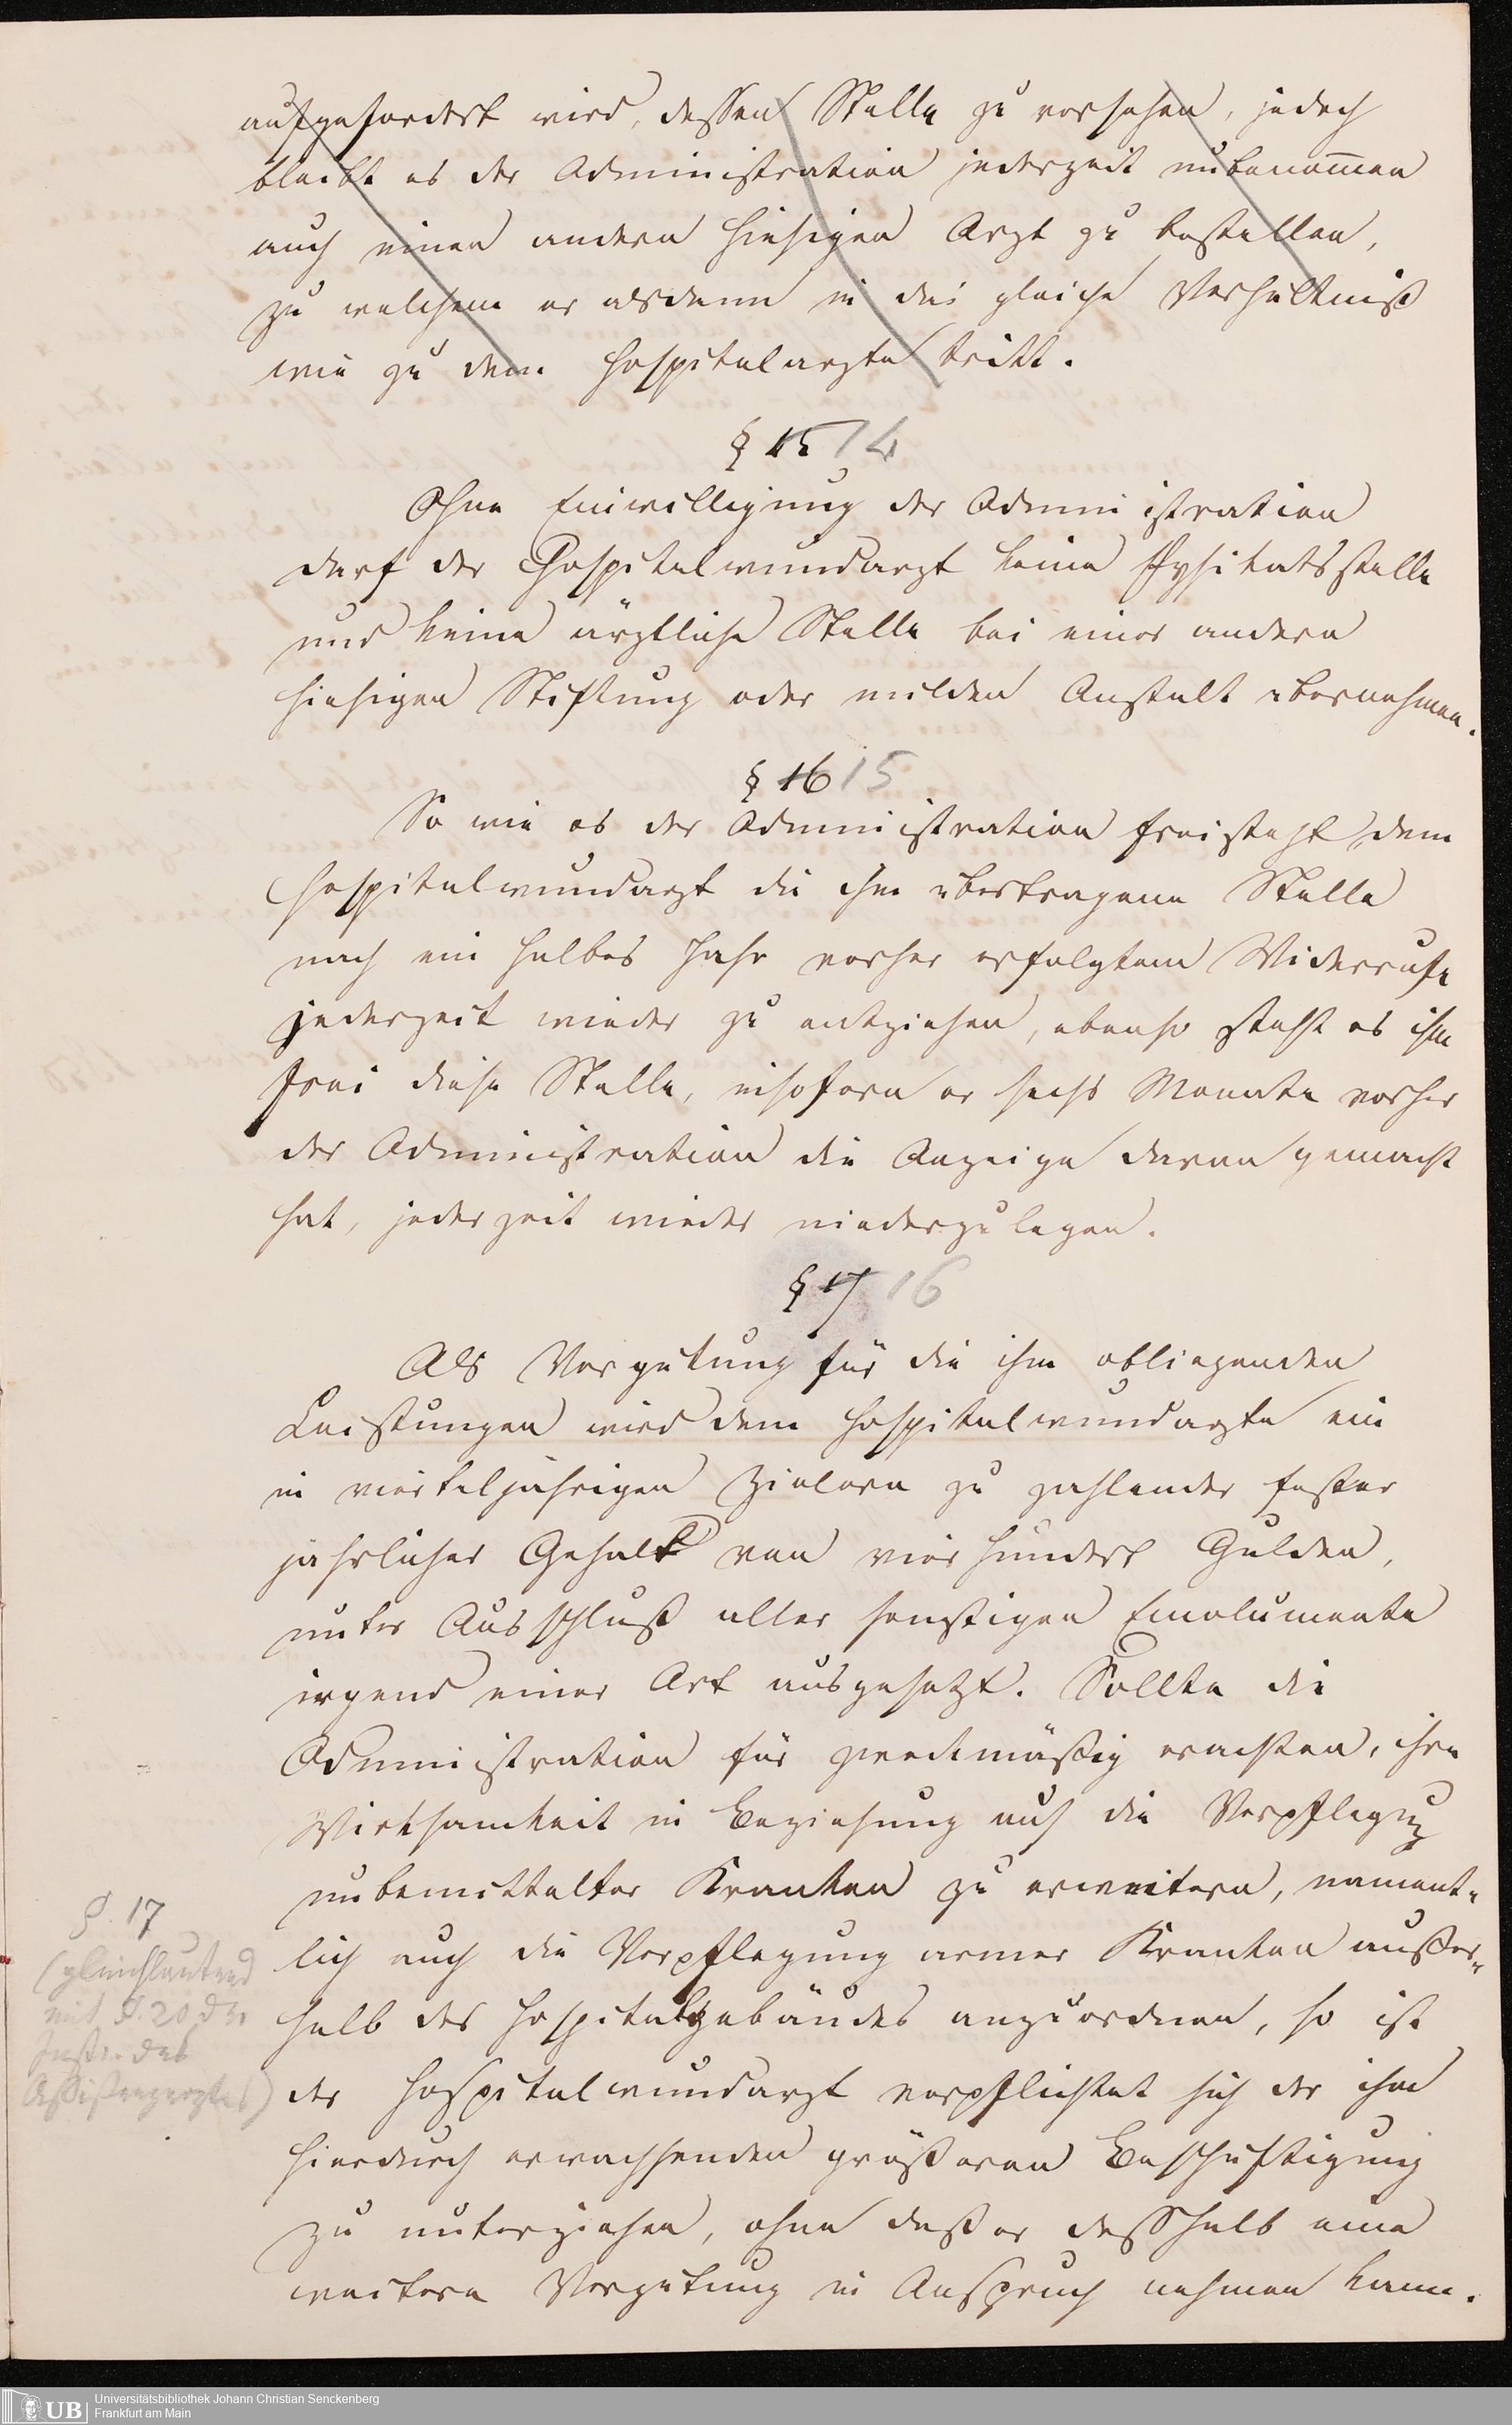 aufgefordert wird, dessen Stelle zu versehen, jedoch
bleibt es der Administration jederzeit unbenommen
auch einen andern hiesigen Arzt zu bestellen,
zu welchem er alsdann in das gleiche Verhältniß
wie zu dem Hospitalarzte tritt.
§ 15 14
Ohne Einwilligung der Administration
darf der Hospitalwundarzt keine Physikatsstelle
und keine ärztliche Stelle bei einer andern
hiesigen Stiftung oder milden Anstalt übernehmen.
§ 16 15
So wie es der Administration freisteht, dem
Hospitalwundarzt die ihm übertragene Stelle
nach ein halbes Jahr vorher erfolgtem Widerrufe
jederzeit wieder zu entziehen, ebenso steht es ihm
frei diese Stelle, insofern er sechs Monate vorher
der Administration die Anzeige davon gemacht
hat, jederzeit wieder niederzulegen.
§ 17 16
Als Vergütung für die ihm obliegenden
Leistungen wird dem Hospitalwundarzte ein
in vierteljährigen Zielern zu zahlender fester
jährlicher Gehalt von vierhundert Gulden,
unter Ausschluß aller sonstigen Emolumente
irgend einer Art ausgesetzt. Sollte die
Administration für zweckmäßig erachten, ihre
Wirksamkeit in Beziehung auf die Verpflegung
unbemittelter Kranken zu erweitern, nament-
lich auch die Verpflegung armer Kranken außer-
halb des Hospitalgebäudes anzuordnen, so ist
der Hospitalwundarzt verpflichtet sich der ihm
hierdurch erwachsenden größeren Beschäftigung
zu unterziehen, ohne daß er desshalb eine
weitere Vergütung in Anspruch nehmen kann.
§. 17
(gleichlautend
mit §. 20 der
Instr. des
Assistenzarztes)
UB
Universitätsbibliothek Johann Christian Senckenberg
Frankfurt am Main